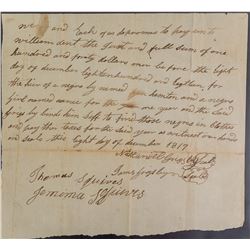 we and Each of us promas to pay unto
William dent the Just and full sum of one
hundred and forty dollars one or before the Eight
day of december Eighteen hundred and Eighteen, for
the hier of a negro by named and a negro
Girl named for the year one year and the said
binds him Self to find those negros in Clothes
and pay thire taxes for the said year as witness our hand
and Seals this Eight day of december 1817
Seal
James Seal
Thomas Squires
Jemima Squires